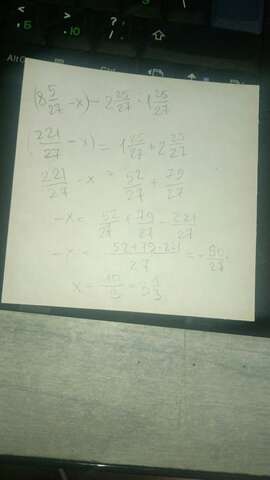 (8 5/27 - x) - 2 25/27 = 1 25/27
(221/27 - x) = 1 25/27 + 2 25/27
221/27 - x = 52/27 + 79/27
-x = 52/27 + 79/27 - 221/27
-x = (52+79-221)/27 = -90/27
x = 10/3 = 3 1/3